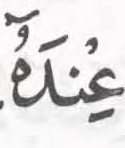 عِنْدَهُۥٓ